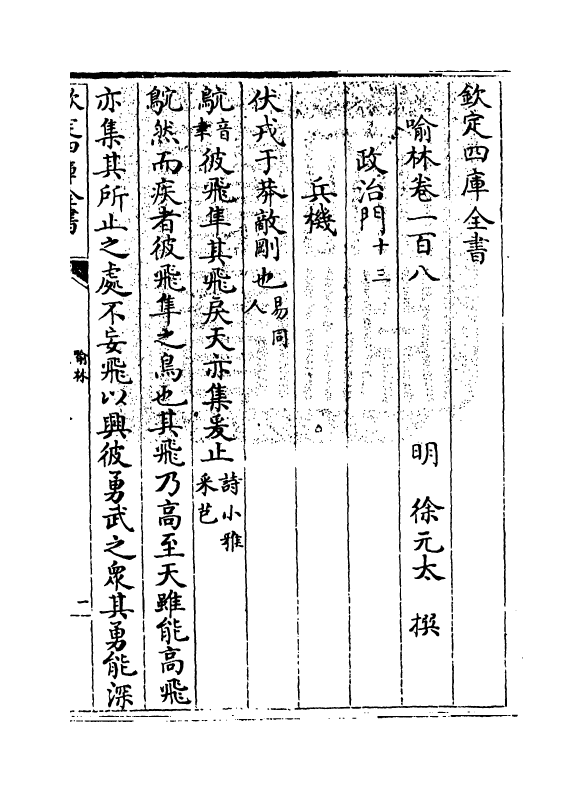 欽定四庫全書
喻林卷一百八
明 徐元太 撰
政治門十三
兵機
伏戎于莽敵剛也易同人
鴥音聿彼飛隼其飛戾天亦集爰止詩小雅采芑
鴥然而疾者彼飛隼之鳥也其飛乃高至天雖能高飛
亦集其所止之處不妄飛以興彼勇武之衆其勇能深
欽定四庫全書
喻林
一